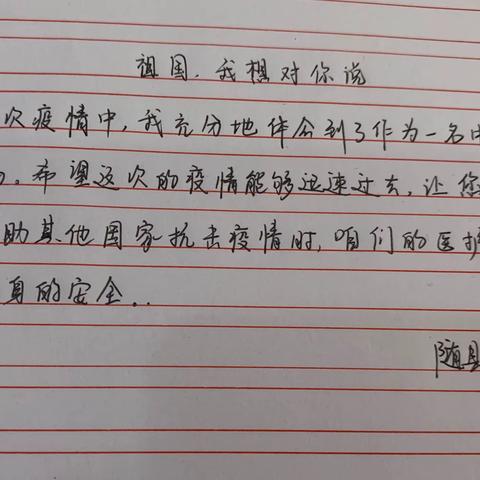 祖国，我想对你说
次疫情中，我充分地体会到了作为一名中
。希望这次的疫情能够迅速过去，让您
助其他国家抗击疫情时，咱们的医护
身的安全..
随县